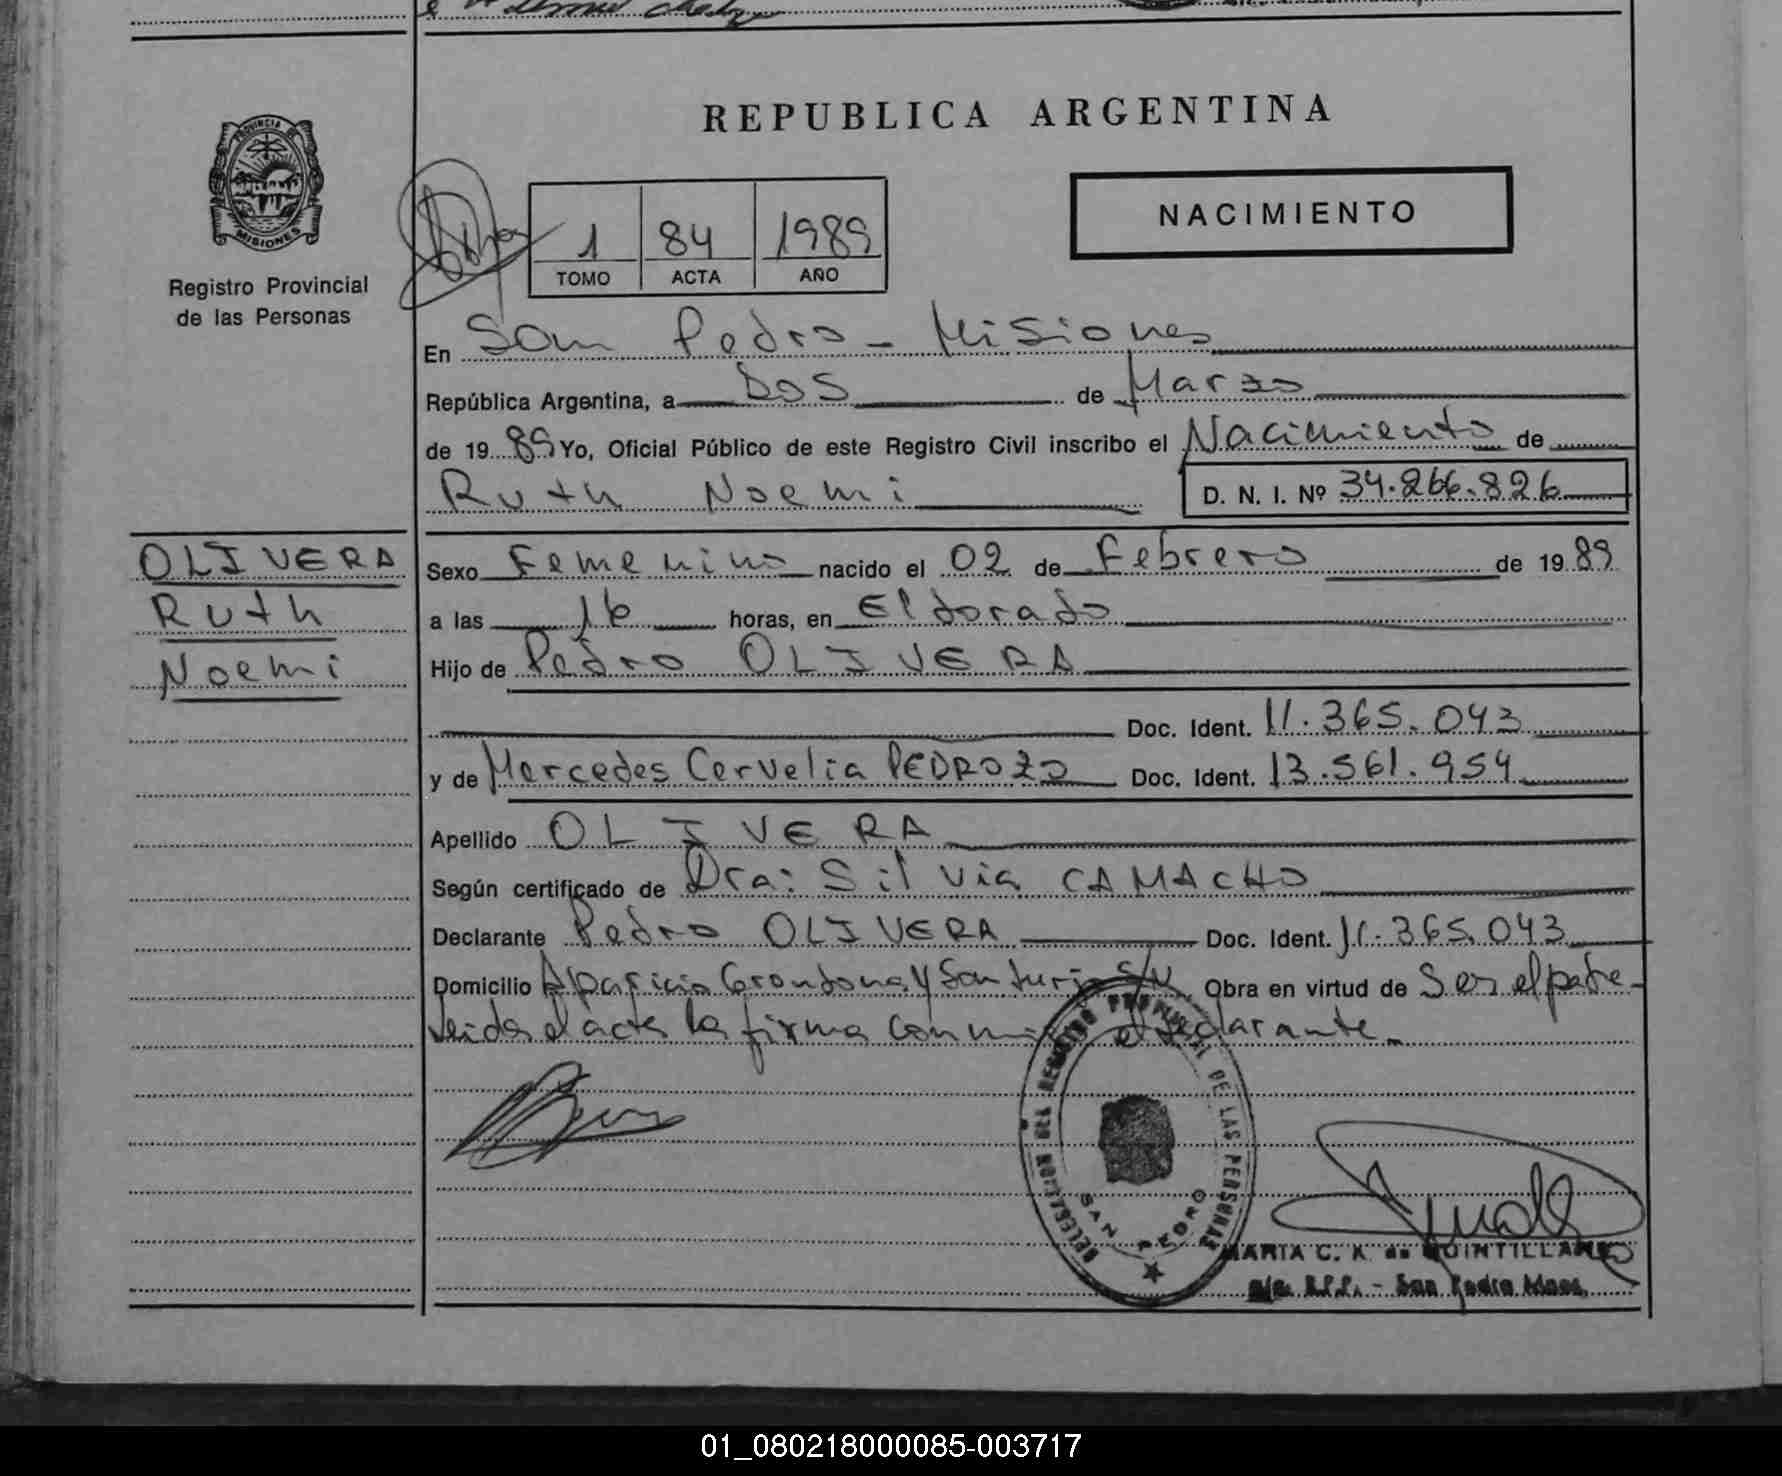 REPUBLICA ARGENTINA
PROVINCIA DE MISIONES
Registro Provincial
de las Personas
1 84 1989
TOMO ACTA AÑO
NACIMIENTO
En San Pedro - Misiones
República Argentina, a Dos de Marzo
de 1989 Yo, Oficial Público de este Registro Civil inscribo el Nacimiento de
Ruth Noemi D. N. I. Nº 34.266.826
OLIVERA
Ruth
Noemi
Sexo Femenino nacido el 02 de Febrero de 1989
a las 16 horas, en Eldorado
Hijo de Pedro OLIVERA
Doc. Ident. 11.365.043
y de Mercedes Cervelia PEDROZO Doc. Ident. 13.561.954
Apellido OLIVERA
Según certificado de Dra: Silvia CAMACHO
Declarante Pedro OLIVERA Doc. Ident. 11.365.043
Domicilio Aparicio Grondona y San Turjo S/N Obra en virtud de Ser el padre-
Leida el acta la firma con mi el declarante.
DELEGACION DEL REGISTRO PROVINCIAL DE LAS PERSONAS
SAN PEDRO
MARIA C. K. de QUINTILLAN
a/c. R.P.P. - San Pedro Mnes.
01_080218000085-003717